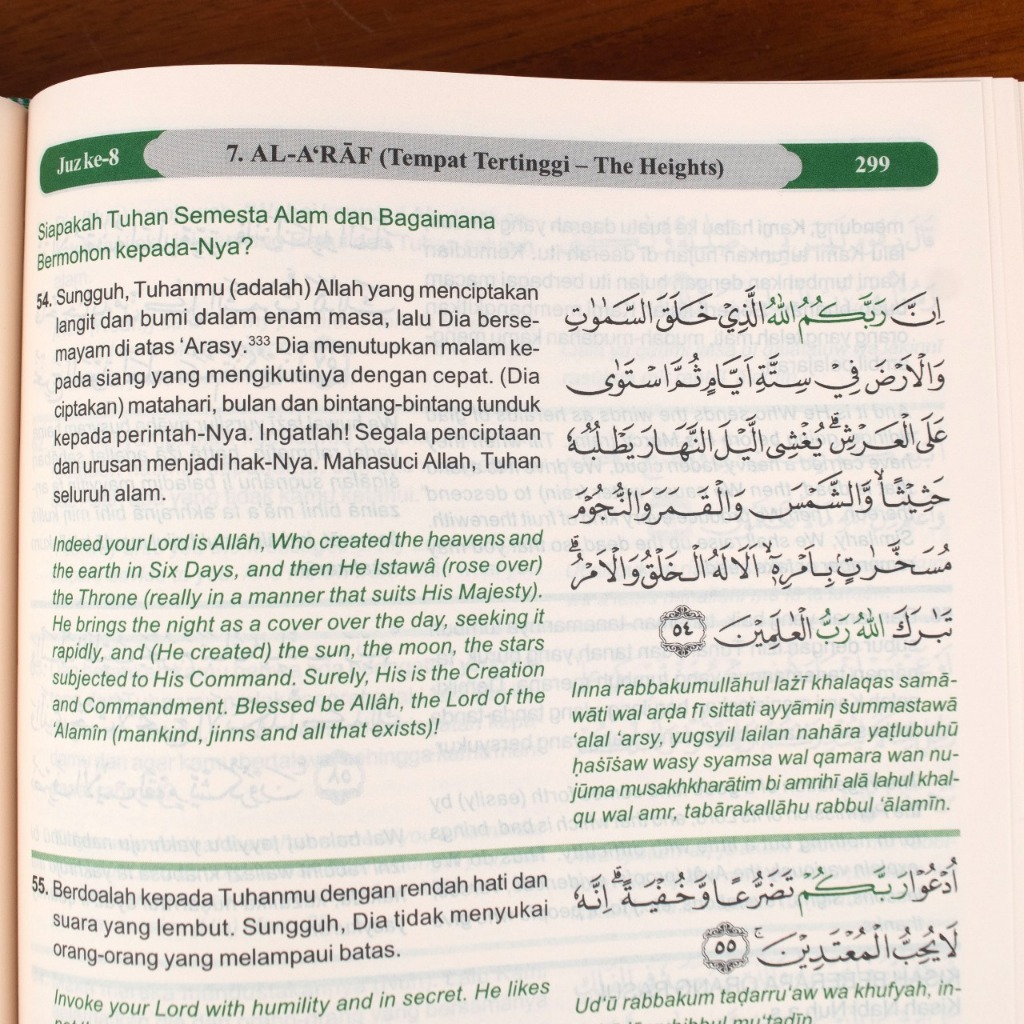 Juz ke-8
7. AL-A‘RĀF (Tempat Tertinggi – The Heights)
299
Siapakah Tuhan Semesta Alam dan Bagaimana
Bermohon kepada-Nya?
54. Sungguh, Tuhanmu (adalah) Allah yang menciptakan
langit dan bumi dalam enam masa, lalu Dia berse-
mayam di atas ‘Arasy.³³³ Dia menutupkan malam ke-
pada siang yang mengikutinya dengan cepat. (Dia
ciptakan) matahari, bulan dan bintang-bintang tunduk
kepada perintah-Nya. Ingatlah! Segala penciptaan
dan urusan menjadi hak-Nya. Mahasuci Allah, Tuhan
seluruh alam.
Indeed your Lord is Allâh, Who created the heavens and
the earth in Six Days, and then He Istawâ (rose over)
the Throne (really in a manner that suits His Majesty).
He brings the night as a cover over the day, seeking it
rapidly, and (He created) the sun, the moon, the stars
subjected to His Command. Surely, His is the Creation
and Commandment. Blessed be Allâh, the Lord of the
‘Alamîn (mankind, jinns and all that exists)!
اِنَّ رَبَّكُمُ اللّٰهُ الَّذِيْ خَلَقَ السَّمٰوٰتِ
وَالْاَرْضَ فِيْ سِتَّةِ اَيَّامٍ ثُمَّ اسْتَوٰى
عَلَى الْعَرْشِۗ يُغْشِى الَّيْلَ النَّهَارَ يَطْلُبُهٗ
حَثِيْثًاۙ وَّالشَّمْسَ وَالْقَمَرَ وَالنُّجُوْمَ
مُسَخَّرٰتٍۢ بِاَمْرِهٖۗ اَلَا لَهُ الْخَلْقُ وَالْاَمْرُۗ
تَبٰرَكَ اللّٰهُ رَبُّ الْعٰلَمِيْنَ ٥٤
Inna rabbakumullāhul lażī khalaqas samā-
wāti wal arḍa fī sittati ayyāmiṇ ṡummastawā
‘alal ‘arsy, yugsyil lailan nahāra yaṭlubuhū
ḥaṡīṡaw wasy syamsa wal qamara wan nu-
jūma musakhkharātim bi amrihī alā lahul khal-
qu wal amr, tabārakallāhu rabbul ‘ālamīn.
55. Berdoalah kepada Tuhanmu dengan rendah hati dan
suara yang lembut. Sungguh, Dia tidak menyukai
orang-orang yang melampaui batas.
Invoke your Lord with humility and in secret. He likes
اُدْعُوْا رَبَّكُمْ تَضَرُّعًا وَّخُفْيَةًۗ اِنَّهٗ
لَا يُحِبُّ الْمُعْتَدِيْنَۚ ٥٥
Ud‘ū rabbakum taḍarru‘aw wa khufyah, in-